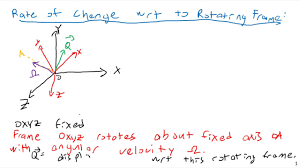 Rate of Change wrt to Rotating Frame:
Y
A
Q
x
Ω
O
X
Z
z
OXYZ fixed
Frame oxyz rotates about fixed axis OA
with angular velocity Ω.
Q = displ wrt this rotating frame.